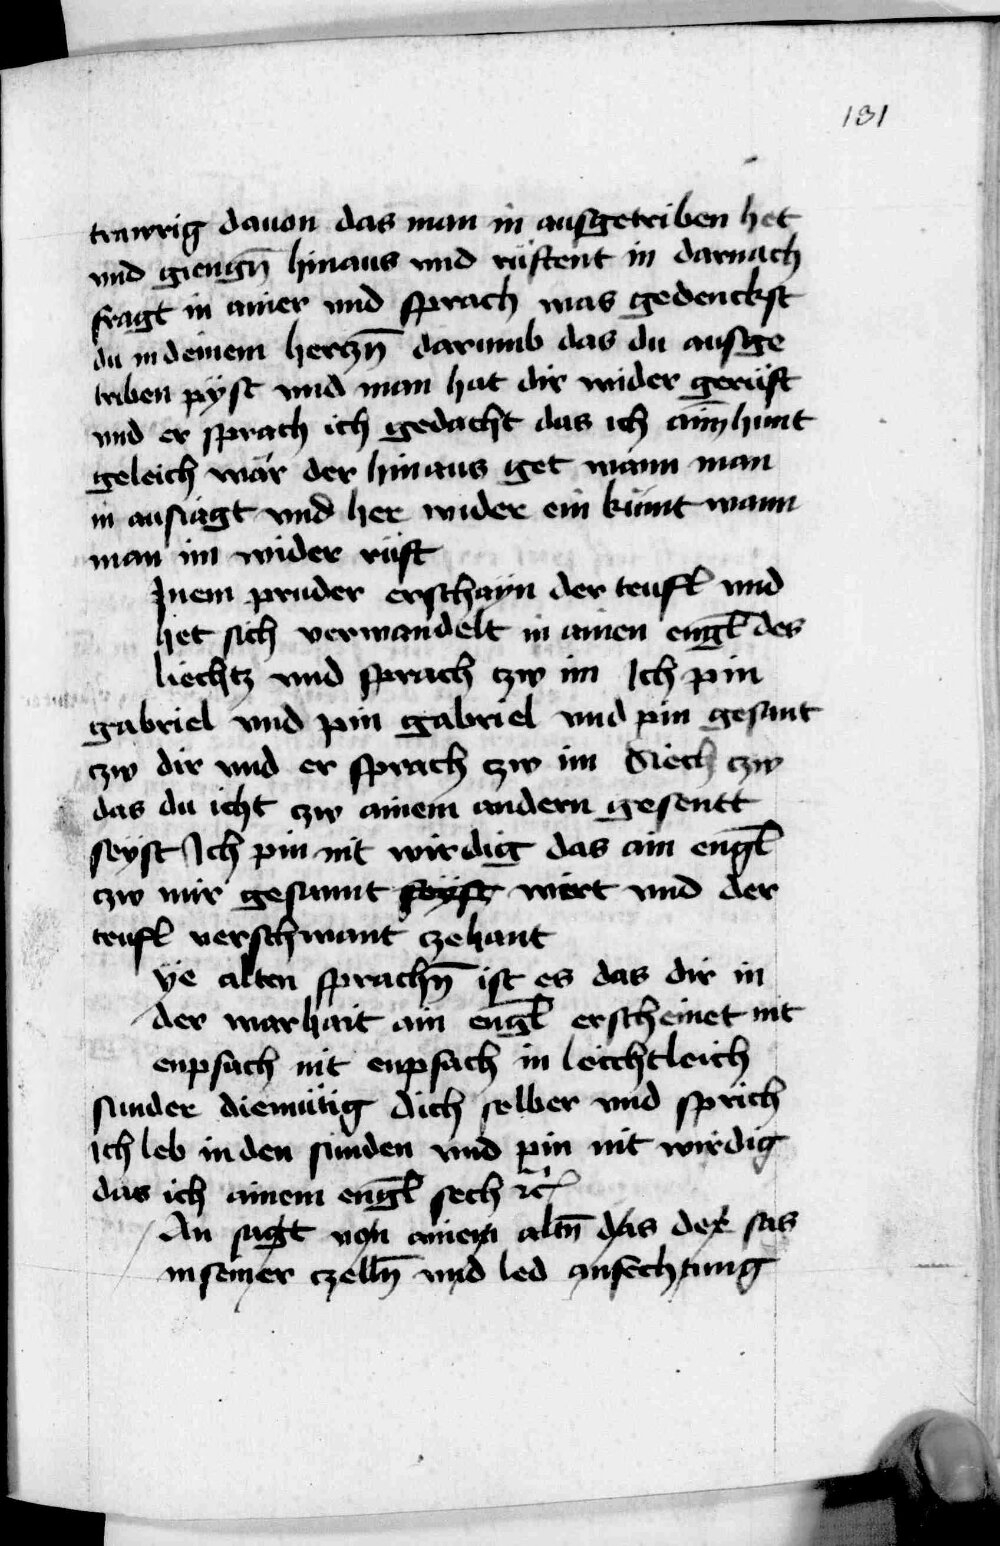 131
trawrig dauon das man in ausgetriben het
vnd giengn̄ hinaus vnd rüftent in darnach
fragt in ainer vnd sprach was gedenckst
du in deinem herczn̄ darumb das du ausge
triben pÿst vnd man hat dir wider gerüft
vnd er sprach ich gedacht das ich aim̄ hunt
geleich wär der hinaus get wann man
in ausiagt vnd her wider ein kumt wann
man im wider rüft
Inem pruder erschayn der teufl vnd
het sich verwandelt in ainen engl des
liechtz vnd sprach czw im Ich pin
gabriel vnd pin gabriel vnd pin gesant
czw dir vnd er sprach czw im Siech czw
das du icht czw ainem andern gesentt
seÿst Ich pin nit wirdig das ain engl
czw mir gesannt seÿst wert vnd der
teufl verschwant czehant
ÿe alten sprachn̄ ist es das dir in
der warhait ain engl erscheinet nit
enpfach nit enpfach in leichtleich
sunder diemütig dich selber vnd sprich
Ich leb in den sunden vnd pin nit wirdig
das ich ainem engl sech ꝛc̄
An sagt von ainem altn̄ das der sas
in seiner czelln̄ vnd led anfechtung